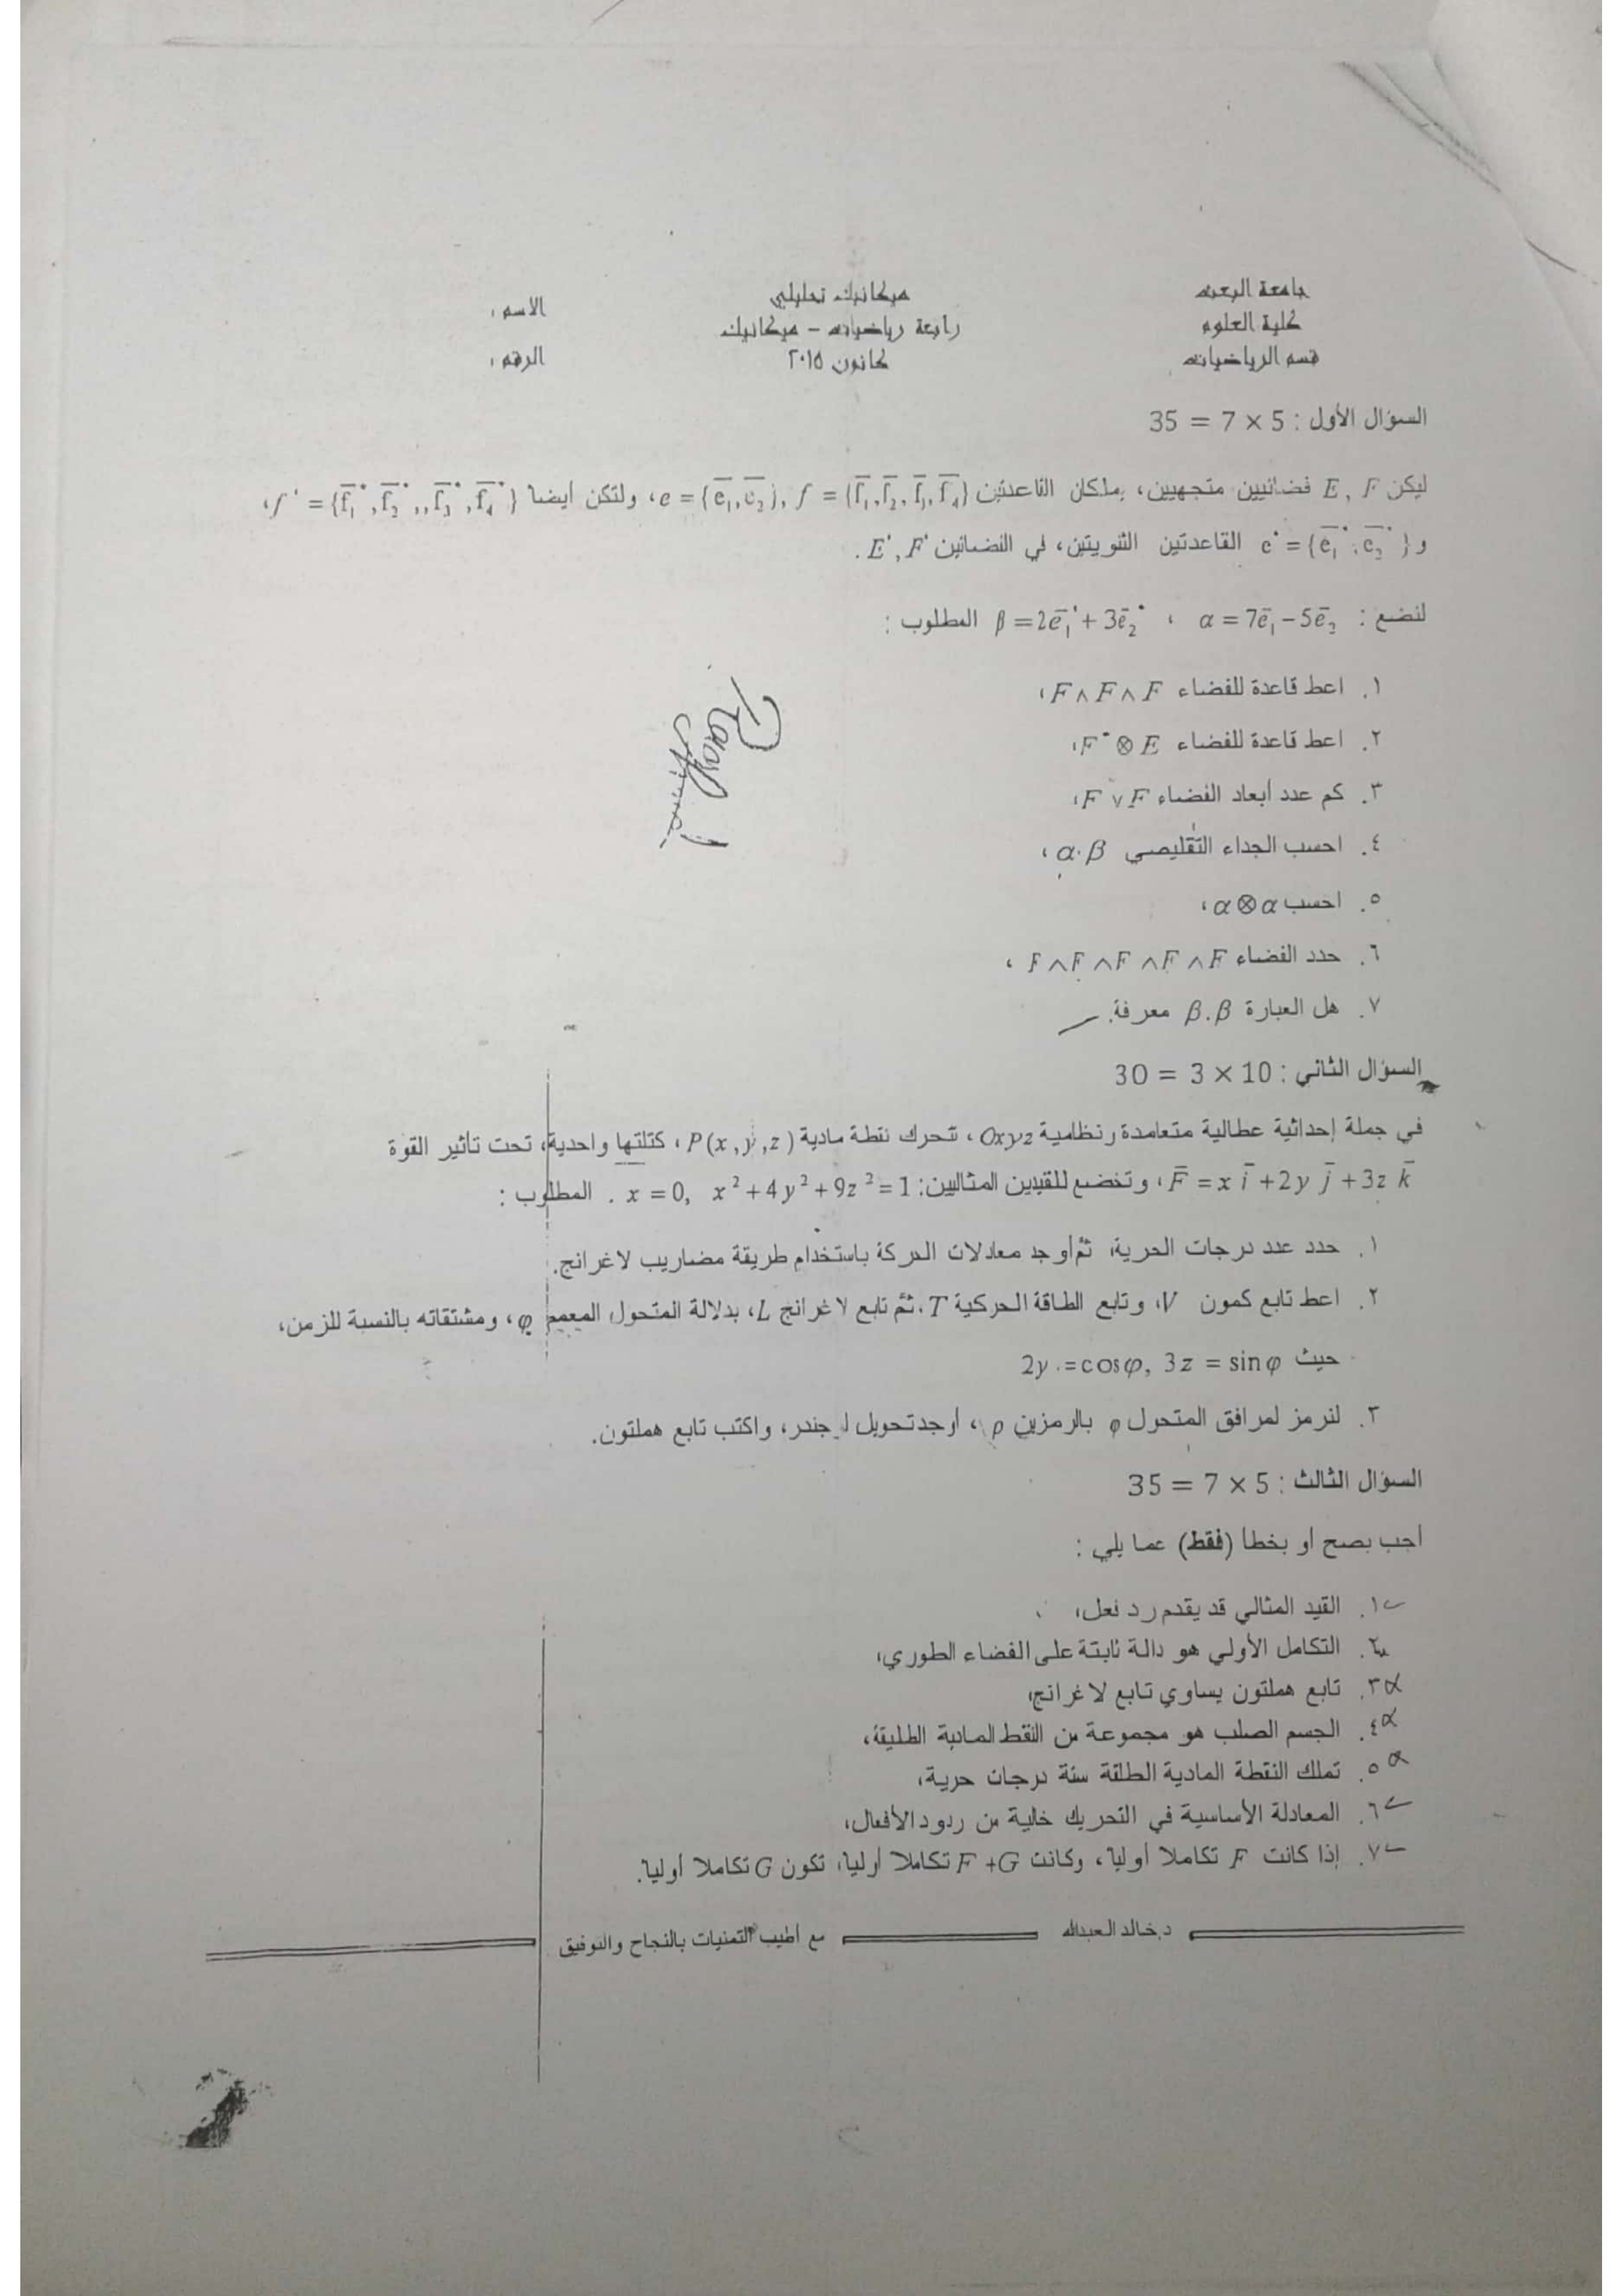 جامعة البعث
كلية العلوم
قسم الرياضيات
ميكانيك تحليلي
رابعة رياضيات - ميكانيك
كانون ٢٠١٥
الاسم :
الرقم :
السؤال الأول : 5 × 7 = 35
ليكن E, F فضائيين متجهيين، يملكان القاعدتين e = {e̅₁, e̅₂}, f = {f̅₁, f̅₂, f̅₃, f̅₄}، ولتكن أيضا f* = {f̅₁*, f̅₂*,, f̅₃*, f̅₄*}،
و e* = {e̅₁*, e̅₂*} القاعدتين الثنويتين، في الفضائين E*, F* .
لنضع : α = 7e̅₁ − 5e̅₂ ، β = 2e̅₁* + 3e̅₂* المطلوب :
١. اعط قاعدة للفضاء F ∧ F ∧ F ،
٢. اعط قاعدة للفضاء F* ⊗ E ،
٣. كم عدد أبعاد الفضاء F ∨ F ،
٤. احسب الجداء التقليصي α·β ،
٥. احسب α ⊗ α ،
٦. حدد الفضاء F ∧ F ∧ F ∧ F ∧ F ،
٧. هل العبارة β.β معرفة.
السؤال الثاني : 10 × 3 = 30
في جملة إحداثية عطالية متعامدة ونظامية Oxyz ، تتحرك نقطة مادية P(x, y, z) ، كتلتها واحدية، تحت تأثير القوة
F̅ = x i̅ + 2y j̅ + 3z k̅ ، وتخضع للقيدين المثاليين: x = 0, x² + 4y² + 9z² = 1 . المطلوب :
١. حدد عدد درجات الحرية، ثم أوجد معادلات الحركة باستخدام طريقة مضاريب لاغرانج.
٢. اعط تابع كمون V، وتابع الطاقة الحركية T، ثم تابع لاغرانج L، بدلالة المتحول المعمم φ، ومشتقاته بالنسبة للزمن،
حيث 2y = cos φ, 3z = sin φ
٣. لنرمز لمرافق المتحول φ بالرمزين p ، أوجد تحويل لجندر، واكتب تابع هملتون.
السؤال الثالث : 5 × 7 = 35
أجب بصح أو بخطأ (فقط) عما يلي :
١. القيد المثالي قد يقدم رد فعل،
٢. التكامل الأولي هو دالة ثابتة على الفضاء الطوري،
٣. تابع هملتون يساوي تابع لاغرانج،
٤. الجسم الصلب هو مجموعة من النقط المادية الطليقة،
٥. تملك النقطة المادية الطلقة ستة درجات حرية،
٦. المعادلة الأساسية في التحريك خالية من ردود الأفعال،
٧. إذا كانت F تكاملا أوليا، وكانت F + G تكاملا أوليا، تكون G تكاملا أوليا.
د.خالد العبدالله مع أطيب التمنيات بالنجاح والتوفيق